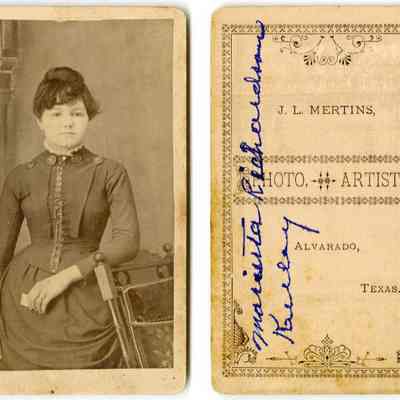 J. L. MERTINS,
PHOTO. ARTIST
ALVARADO,
TEXAS.
Richardson
Kelley